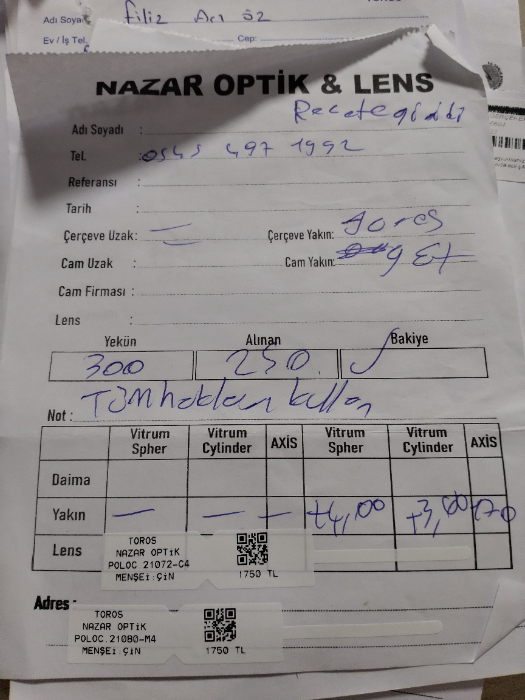 Adı Soyadı Filiz Arı öz
Ev / İş Tel. Cep:
NAZAR OPTİK & LENS
Recete girildi
Adı Soyadı :
Tel. : 0545 497 1992
Referansı :
Tarih :
Çerçeve Uzak: — Çerçeve Yakın: Toros
Cam Uzak : Cam Yakın:
Cam Firması :
Lens :
Yekün Alınan Bakiye
300 250
Not : Tüm hakları kullan
Vitrum Spher Vitrum Cylinder AXİS Vitrum Spher Vitrum Cylinder AXİS
Daima
Yakın — — — +4,00 +3,00 170
Lens
TOROS
NAZAR OPTİK
POLOC 21072-C4
MENŞEİ:ÇİN 1750 TL
Adres :
TOROS
NAZAR OPTİK
POLOC.21080-M4
MENŞEİ:ÇİN 1750 TL